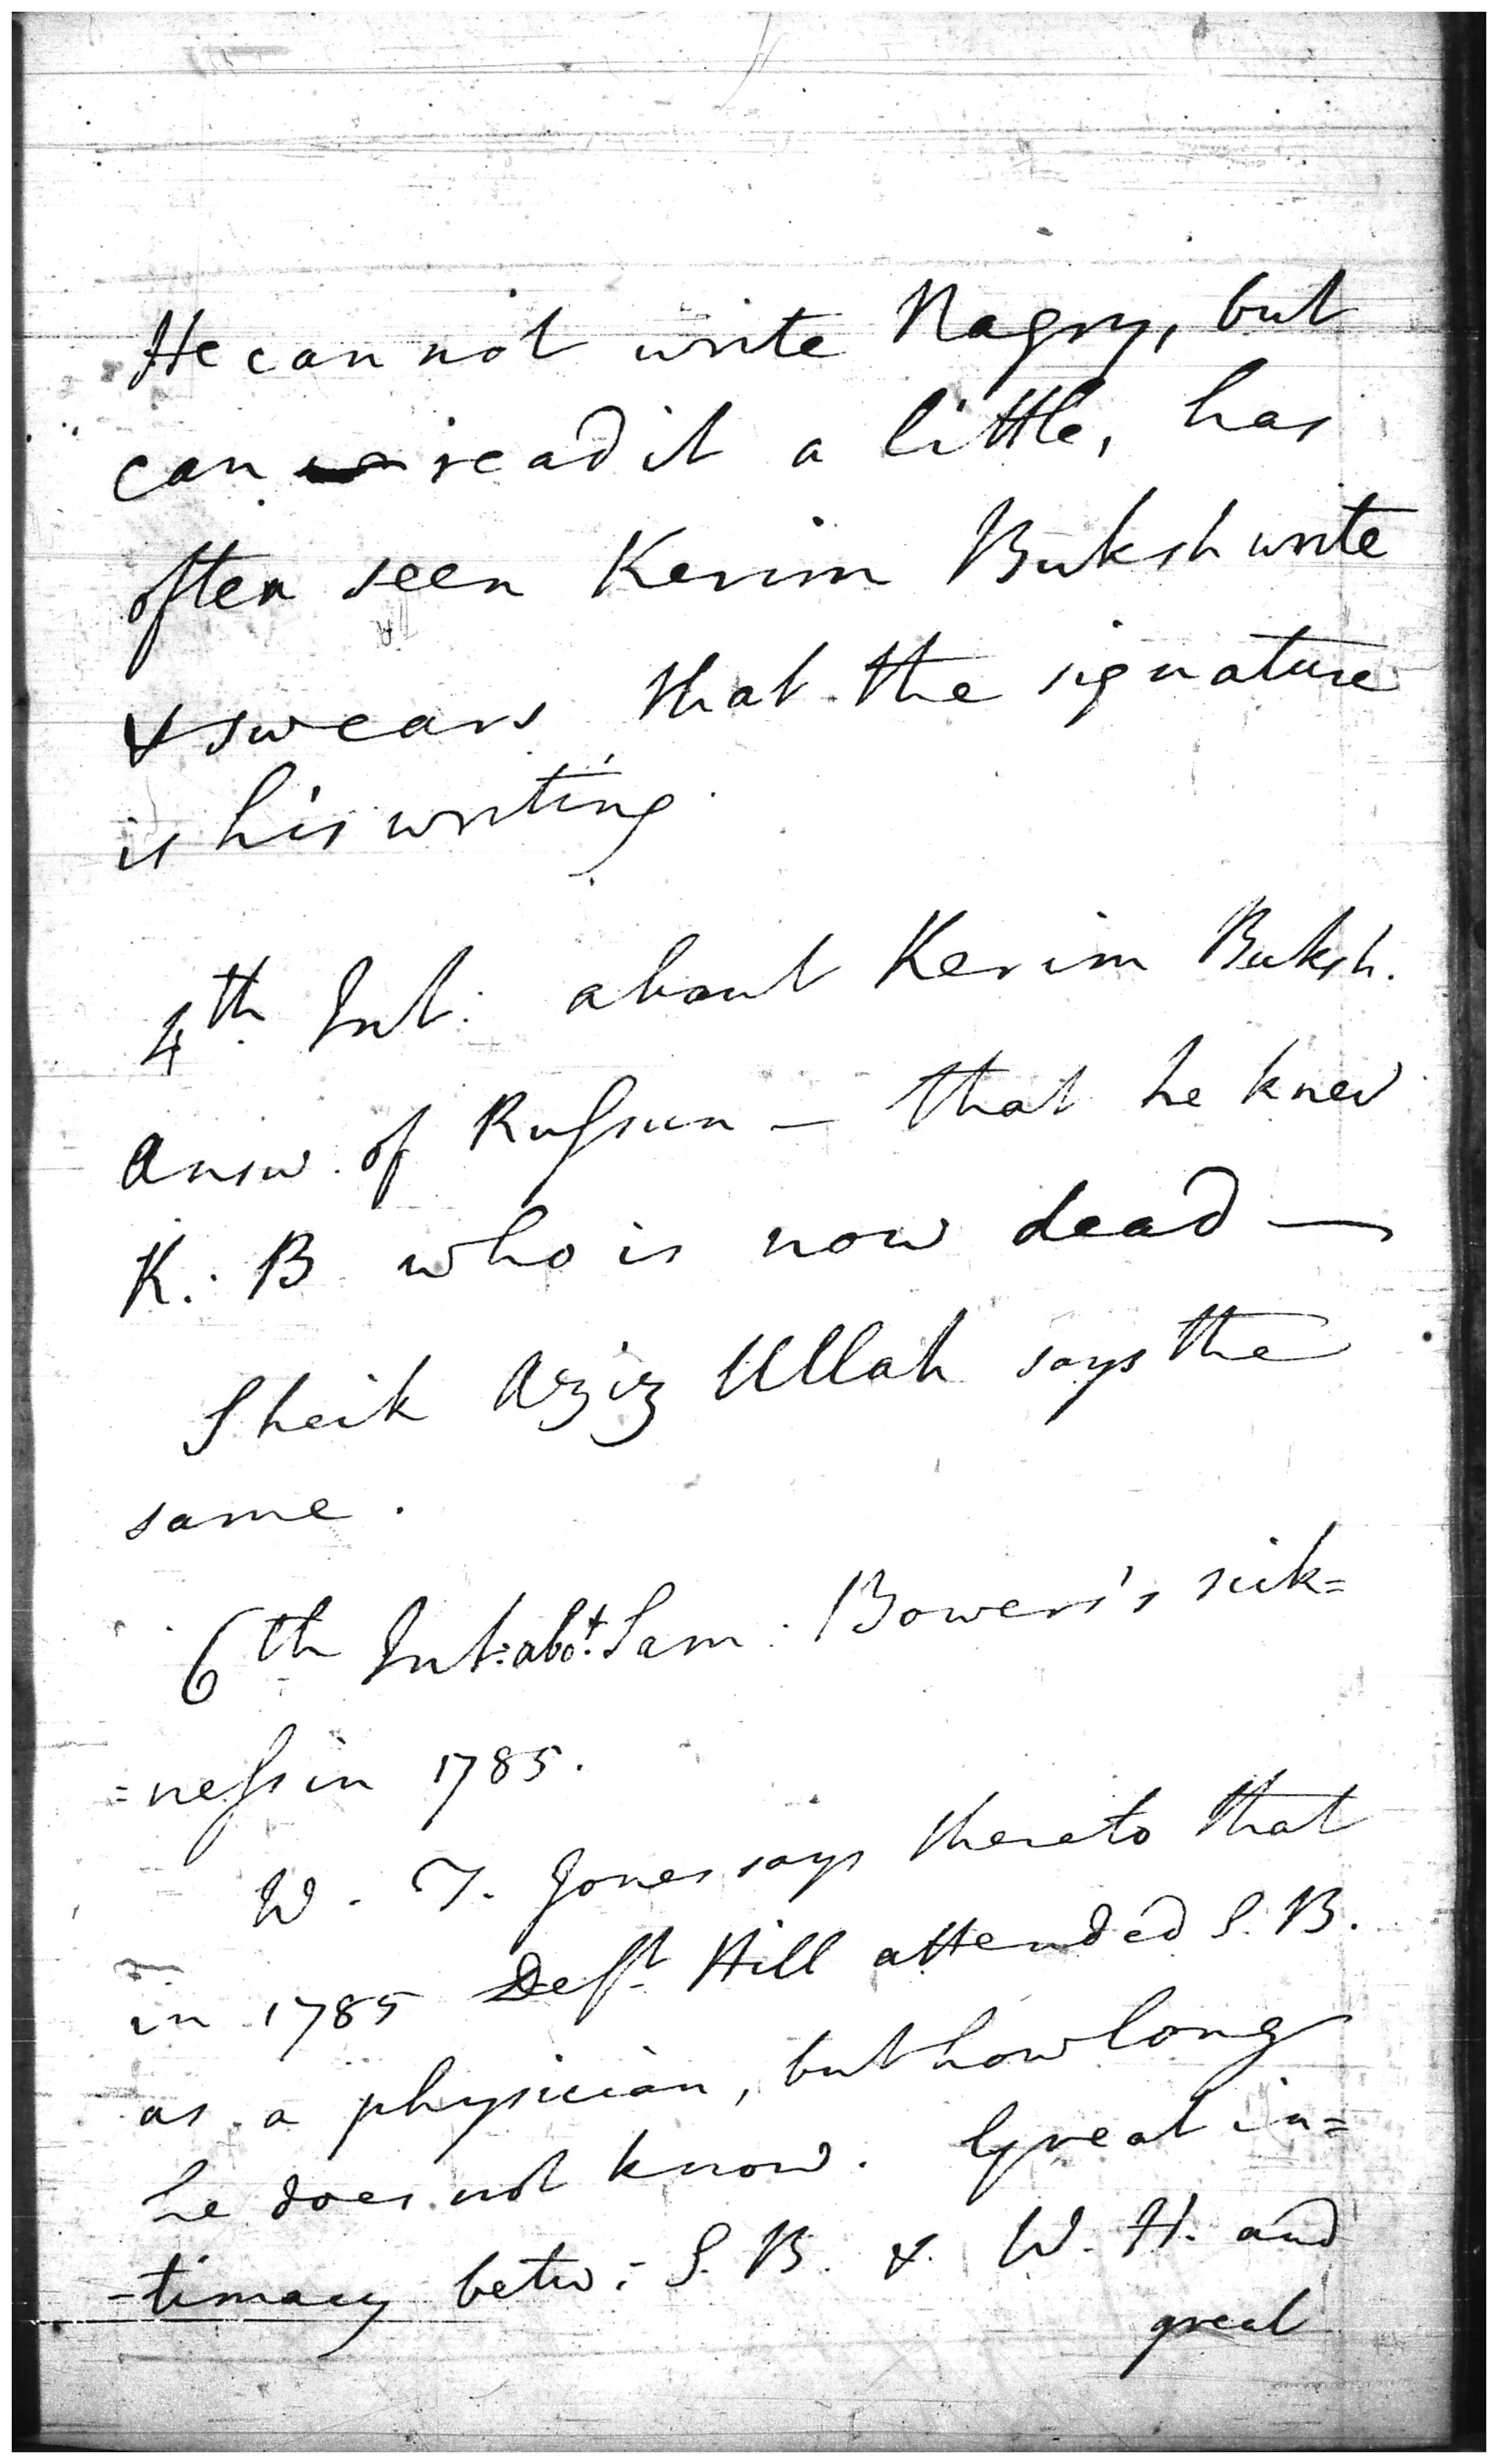 He can not write Nagry, but
can read it a little, has
often seen Kerim Buksh write
& swears that the signature
is his writing.
4th Int: about Kerim Buksh.
Answ. of Rußun — that he knew
K. B who is now dead —
Sheik Aziz Ullah says the
same.
6th Int: abot. Sam: Bowers's sick=
=neß in 1785.
W. T. Jones says thereto that
in 1785 Deft Hill attended S. B.
as a physician, but how long
he does not know. Great in=
-timacy betw: S. B. & W. H. and
great